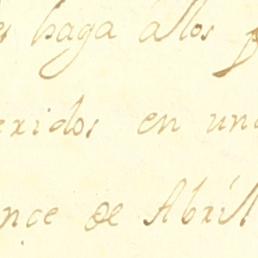 haga állos
eridos en un
nce de Abril